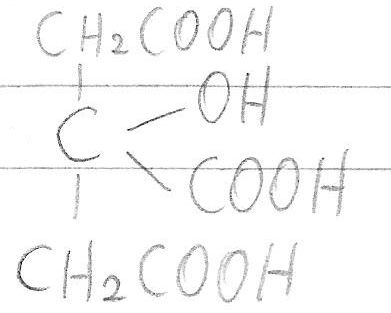 CH2COOH
OH
C
COOH
CH2COOH